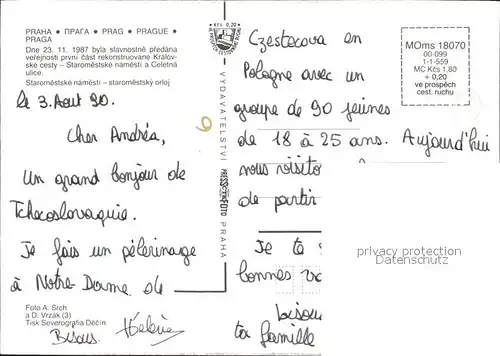 PRAHA • ПРАГА • PRAG • PRAGUE •
PRAGA
Dne 23. 11. 1987 byla slavnostně předána
veřejnosti první část rekonstruované Králov-
ské cesty – Staroměstské náměstí a Celetná
ulice.
Staroměstské náměstí – staroměstský orloj
le 3 Aout 90.
Cher Andréa,
Un grand bonjour de
Tchecoslovaquie.
Je fais un pélerinage
à Notre-Dame de
Foto A. Srch
a D. Vrzák (3)
Tisk Severografia Děčín
Bisous. Hélène
Kčs 0,20
VYDAVATELSTVÍ PRESSFOTO PRAHA
Czestocova en
Pologne avec un
groupe de 90 jeunes
de 18 à 25 ans. Aujourd'hui
nous
de partir
Je te
bonnes
bisou
ta famille
MOms 18070
00-099
1-1-559
MC Kčs 1.80
+ 0,20
ve prospěch
cest. ruchu
privacy protection
Datenschutz